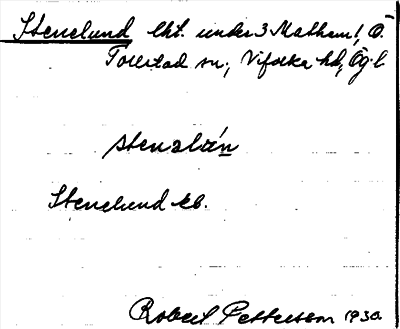 Stenelund lht. under 3 Mathem!, Ö.
Tollstad sn., Vifolka hd, Ög. l.
stenəlún
Stenelund kb.
Robert Pettersson 1930